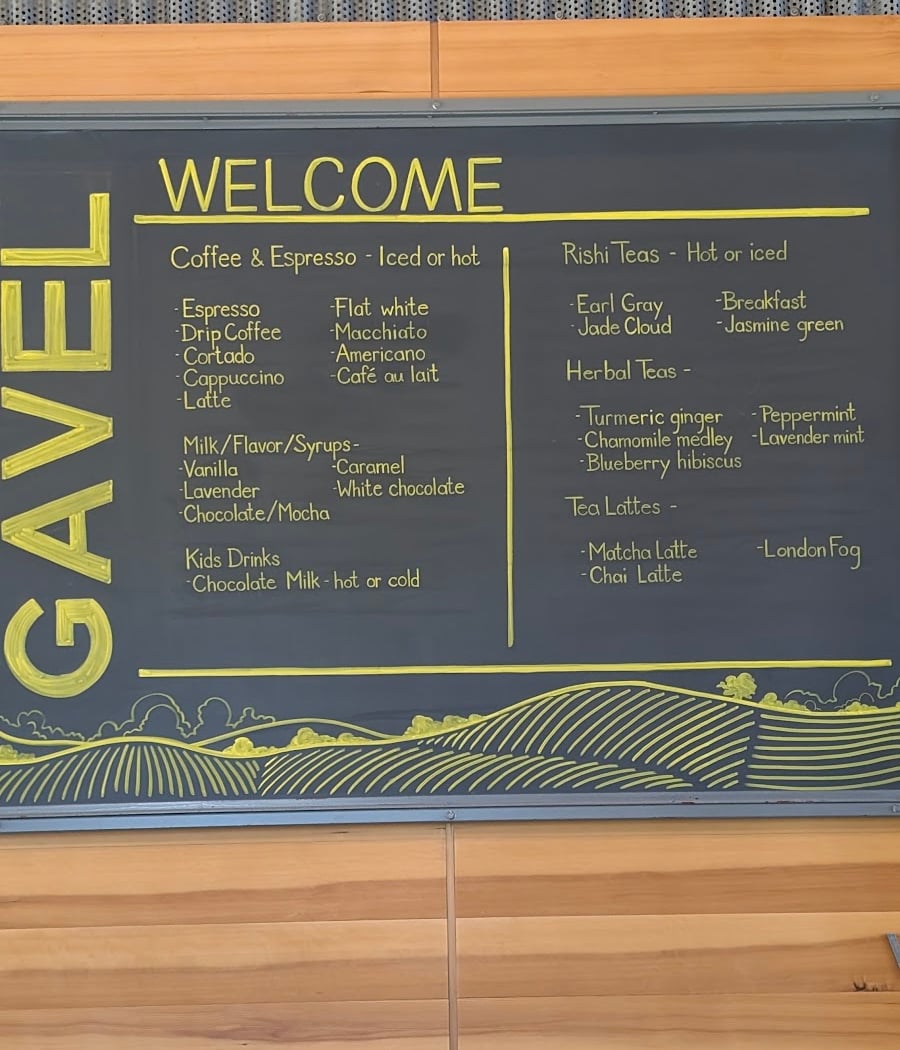 GAVEL
WELCOME
Coffee & Espresso - Iced or hot
-Espresso -Flat white
-Drip Coffee -Macchiato
-Cortado -Americano
-Cappuccino -Café au lait
-Latte
Milk/Flavor/Syrups-
-Vanilla -Caramel
-Lavender -White chocolate
-Chocolate/Mocha
Kids Drinks
-Chocolate Milk - hot or cold
Rishi Teas - Hot or iced
-Earl Gray -Breakfast
-Jade Cloud -Jasmine green
Herbal Teas -
-Turmeric ginger -Peppermint
-Chamomile medley -Lavender mint
-Blueberry hibiscus
Tea Lattes -
-Matcha Latte -London Fog
-Chai Latte